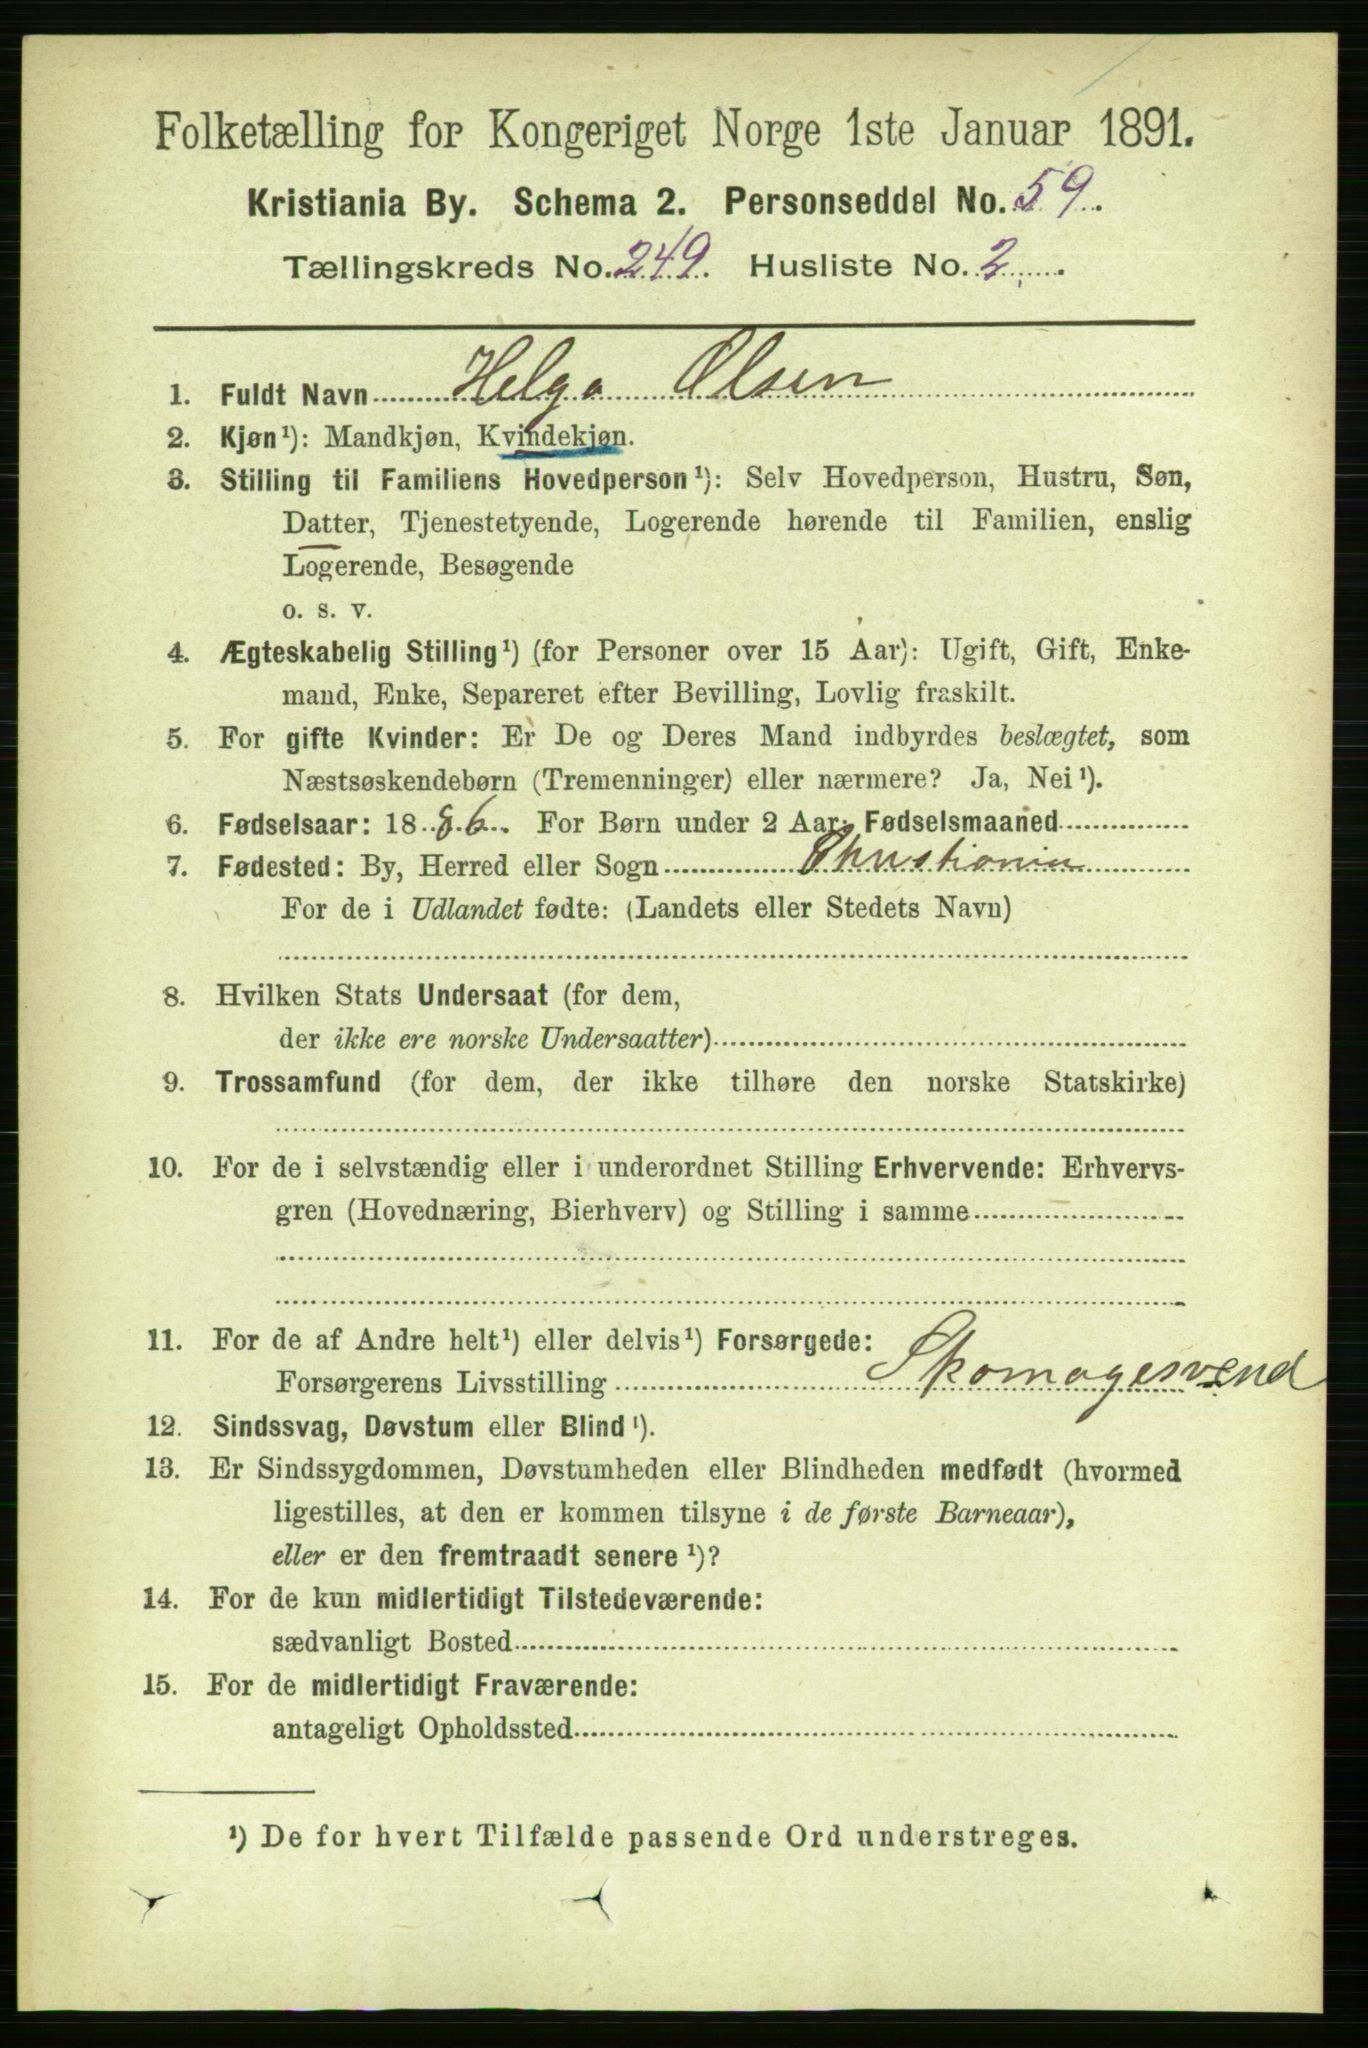 Folketælling for Kongeriget Norge 1ste Januar 1891.
Kristiania By. Schema 2. Personseddel No. 59.
Tællingskreds No. 249. Husliste No. 2.
1. Fuldt Navn Helga Olsen
2. Kjøn¹): Mandkjøn, Kvindekjøn.
3. Stilling til Familiens Hovedperson¹): Selv Hovedperson, Hustru, Søn,
Datter, Tjenestetyende, Logerende hørende til Familien, enslig
Logerende, Besøgende
o. s. v.
4. Ægteskabelig Stilling¹) (for Personer over 15 Aar): Ugift, Gift, Enke-
mand, Enke, Separeret efter Bevilling, Lovlig fraskilt.
5. For gifte Kvinder: Er De og Deres Mand indbyrdes beslægtet, som
Næstsøskendebørn (Tremenninger) eller nærmere? Ja, Nei¹).
6. Fødselsaar: 1886. For Børn under 2 Aar: Fødselsmaaned
7. Fødested: By, Herred eller Sogn Christiania
For de i Udlandet fødte: (Landets eller Stedets Navn)
8. Hvilken Stats Undersaat (for dem,
der ikke ere norske Undersaatter)
9. Trossamfund (for dem, der ikke tilhøre den norske Statskirke)
10. For de i selvstændig eller i underordnet Stilling Erhvervende: Erhvervs-
gren (Hovednæring, Bierhverv) og Stilling i samme
11. For de af Andre helt¹) eller delvis¹) Forsørgede:
Forsørgerens Livsstilling Skomagesvend
12. Sindssvag, Døvstum eller Blind¹).
13. Er Sindssygdommen, Døvstumheden eller Blindheden medfødt (hvormed
ligestilles, at den er kommen tilsyne i de første Barneaar),
eller er den fremtraadt senere¹)?
14. For de kun midlertidigt Tilstedeværende:
sædvanligt Bosted
15. For de midlertidigt Fraværende:
antageligt Opholdssted
¹) De for hvert Tilfælde passende Ord understreges.